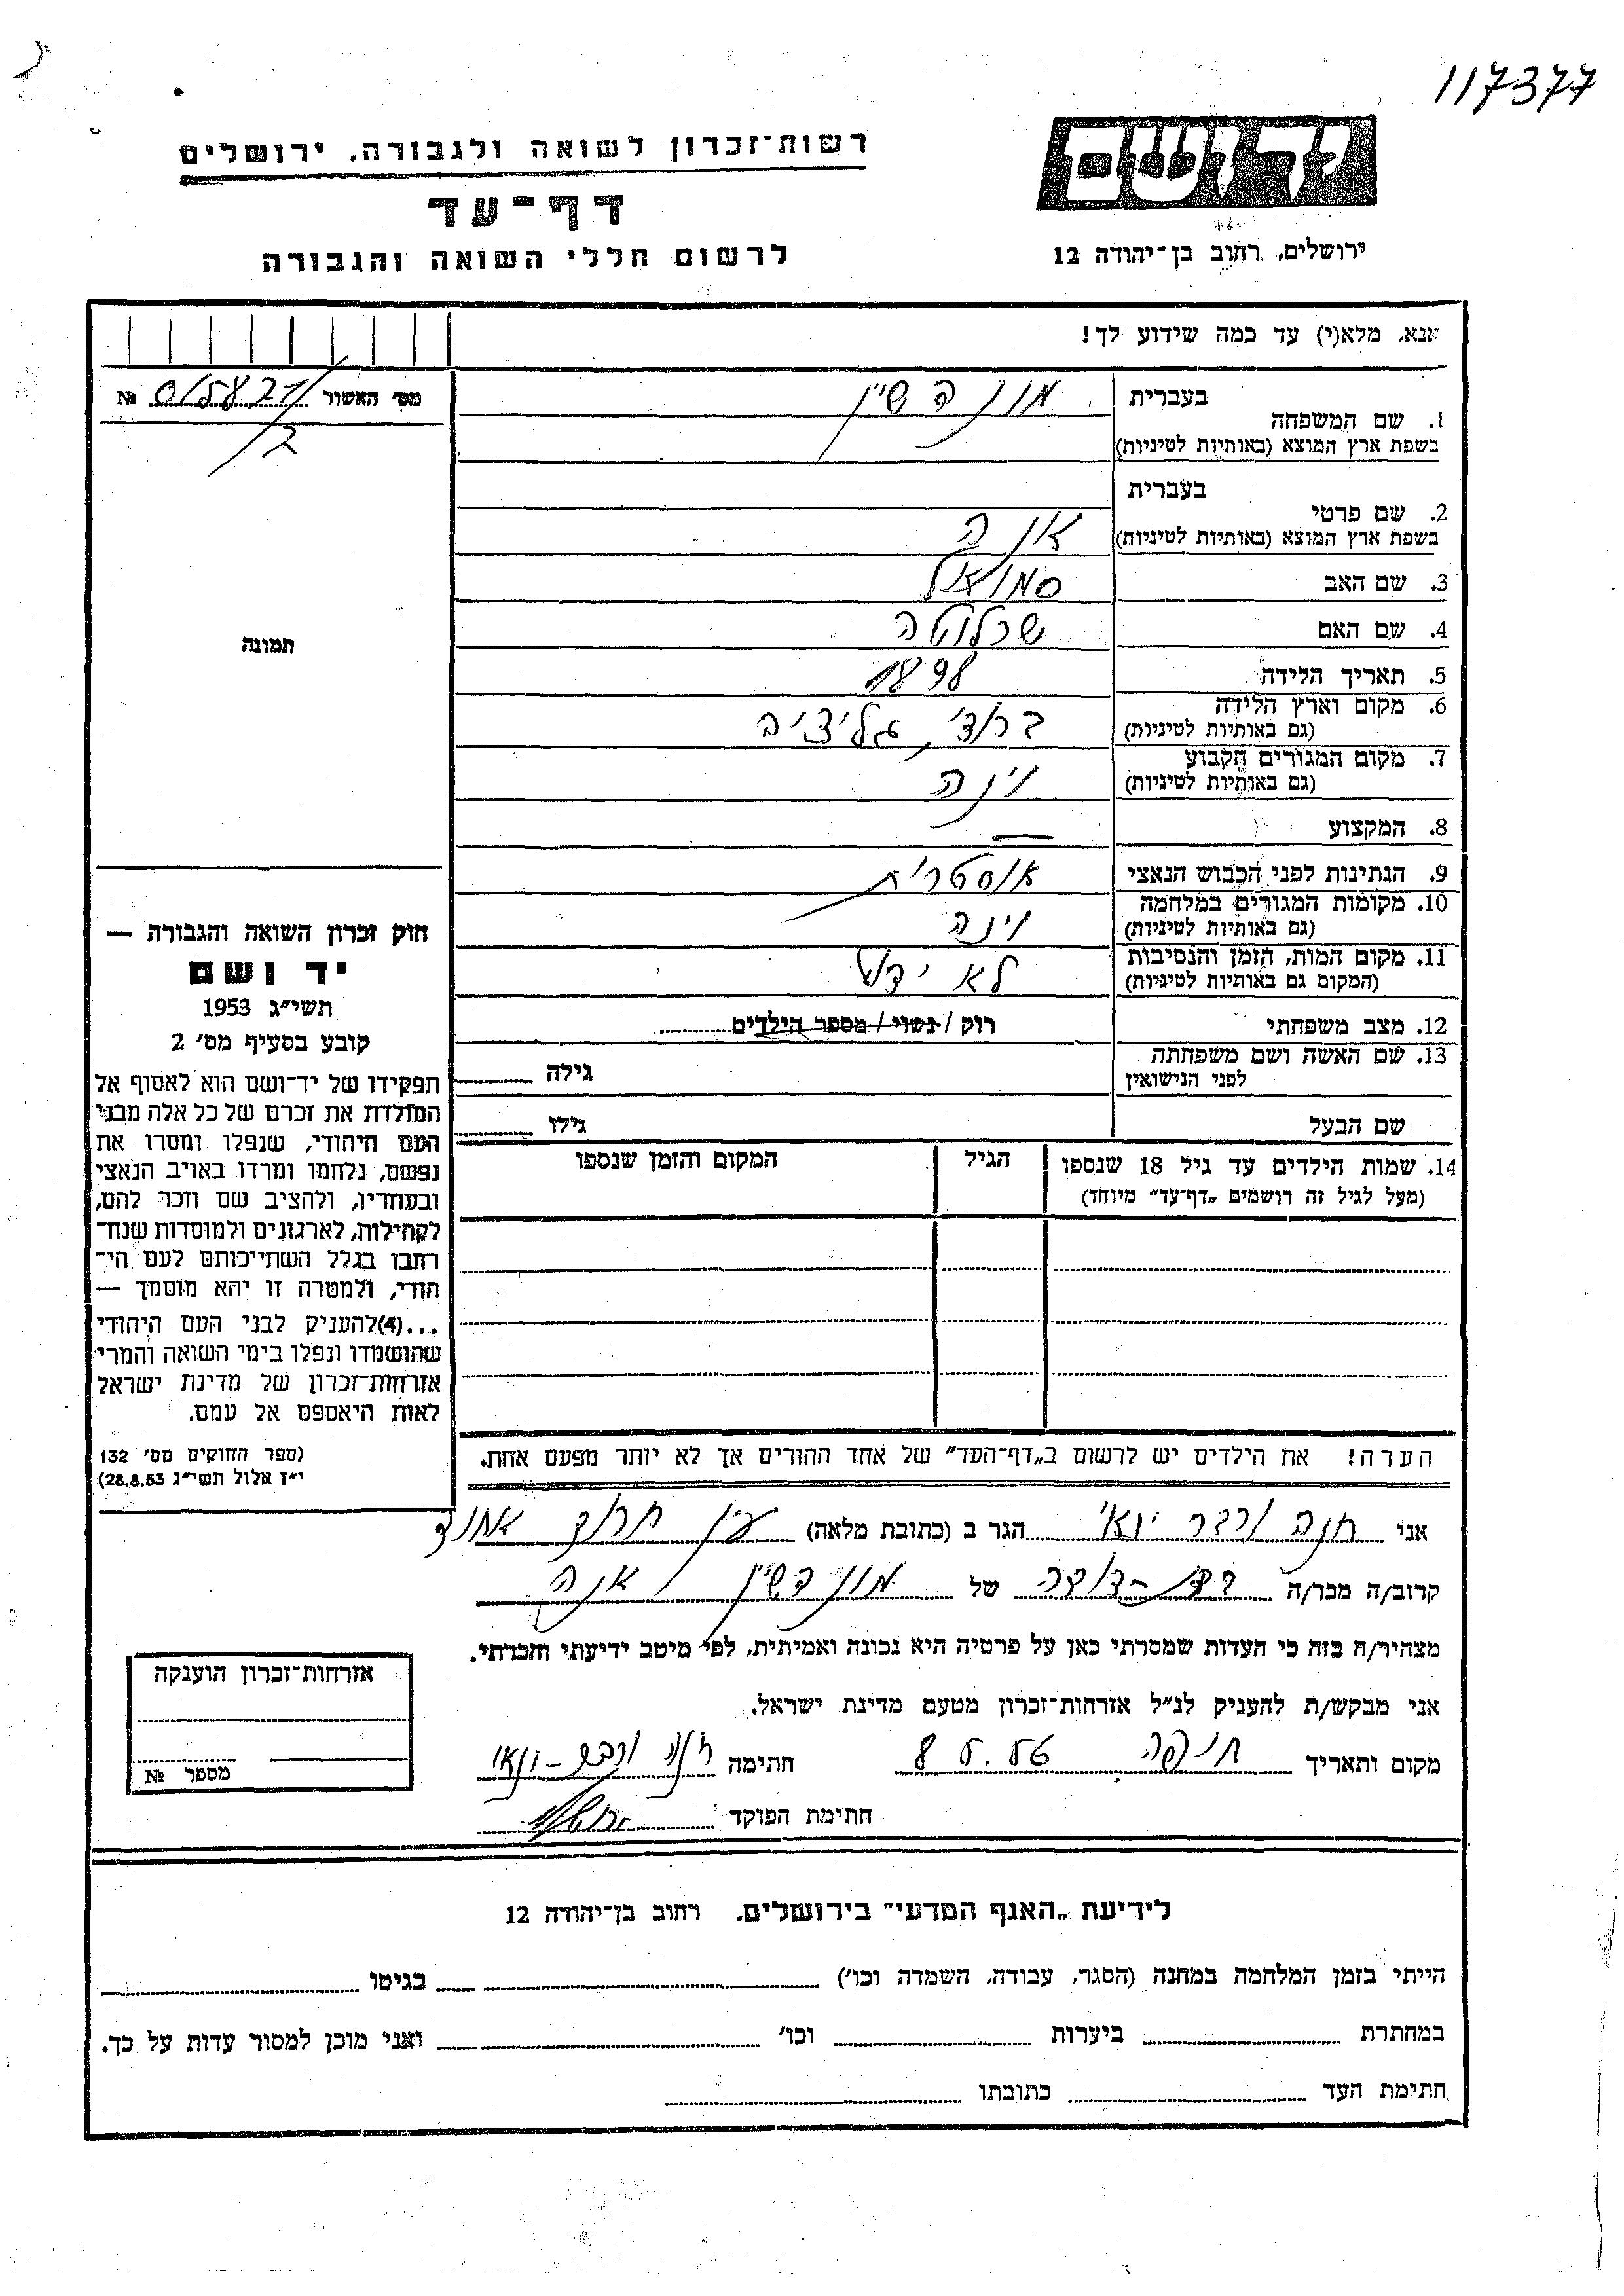 117377
רשות־זכרון לשואה ולגבורה, ירושלים
דף־עד
לרשום חללי השואה והגבורה
יד ושם
ירושלים, רחוב בן־יהודה 12
אנא, מלא(י) עד כמה שידוע לך!
מס׳ האשור № 015821/
2
תמונה
1. שם המשפחה
בעברית מונדשיין
בשפת ארץ המוצא (באותיות לטיניות)
2. שם פרטי
בעברית
בשפת ארץ המוצא (באותיות לטיניות) אנה
3. שם האב סמואל
4. שם האם שרלוטה
5. תאריך הלידה 1898
6. מקום וארץ הלידה ברודי, גליציה
(גם באותיות לטיניות)
7. מקום המגורים הקבוע וינה
(גם באותיות לטיניות)
8. המקצוע —
9. הנתינות לפני הכבוש הנאצי אוסטרית
10. מקומות המגורים במלחמה וינה
(גם באותיות לטיניות)
11. מקום המות, הזמן והנסיבות לא ידוע
(המקום גם באותיות לטיניות)
12. מצב משפחתי רוק / נשוי / מספר הילדים
13. שם האשה ושם משפחתה
לפני הנישואין גילה
שם הבעל גילו
14. שמות הילדים עד גיל 18 שנספו הגיל המקום והזמן שנספו
(מעל לגיל זה רושמים „דף־עד״ מיוחד)
חוק זכרון השואה והגבורה —
יד ושם
תשי״ג 1953
קובע בסעיף מס׳ 2
תפקידו של יד־ושם הוא לאסוף אל
המולדת את זכרם של כל אלה מבני
העם היהודי, שנפלו ומסרו את
נפשם, נלחמו ומרדו באויב הנאצי
ובעוזריו, ולהציב שם וזכר להם,
לקהילות, לארגונים ולמוסדות שנח־
רחבו בגלל השתייכותם לעם הי־
הודי, ולמטרה זו יהא מוסמך —
...(4)להעניק לבני העם היהודי
שהושמדו ונפלו בימי השואה והמרי
אזרחות־זכרון של מדינת ישראל
לאות היאספם אל עמם.
(ספר החוקים מס׳ 132
י״ז אלול תשי״ג 28.8.53)
הערה! את הילדים יש לרשום ב„דף־העד״ של אחד ההורים אך לא יותר מפעם אחת.
אני חנה ורבר הגר ב (כתובת מלאה) עין חרוד אחוד
קרוב/ה מכר/ה בת-דודה של מונדשיין אנה
מצהיר/ה בזה כי העדות שמסרתי כאן על פרטיה היא נכונה ואמיתית, לפי מיטב ידיעתי והכרתי.
אני מבקש/ת להעניק לנ״ל אזרחות־זכרון מטעם מדינת ישראל.
מקום ותאריך חיפה 8.5.56 חתימה
חתימת הפוקד
אזרחות־זכרון הוענקה
מספר №
לידיעת „האגף המדעי״ בירושלים. רחוב בן־יהודה 12
הייתי בזמן המלחמה במחנה (הסגר, עבודה, השמדה וכו׳) בגיטו
במחתרת ביערות וכו׳ ואני מוכן למסור עדות על כך.
חתימת העד כתובתו